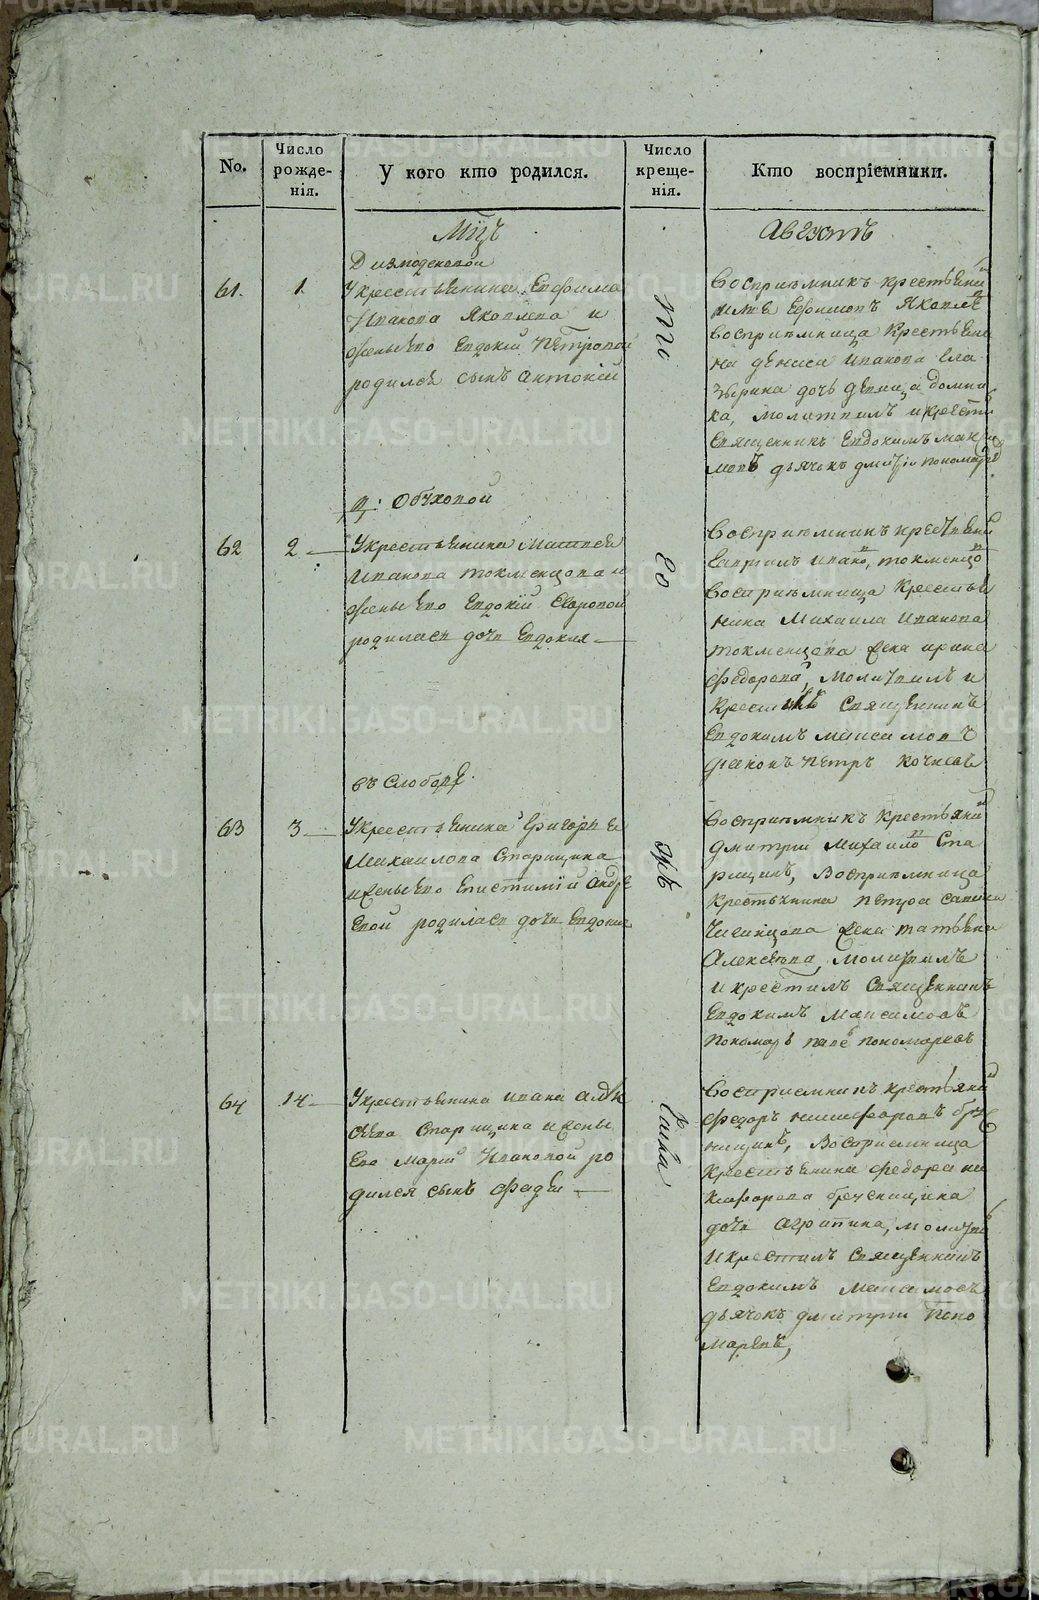 METRIKI.GASO-URAL.RU
No.
Число рожде- нія.
У кого кто родился.
Число креще- нія.
Кто воспріемники.
Мцъ
Августъ
61.
1
У крестьянина Евфима
Иванова Яковлева и
жены его Евдокіи Петровой
родился сынъ Антоній
того
Воспріемникъ крестьянинъ
воспріемница крестьяни
на Дениса Иванова Ека
терина дочь девица Домни
ка, молитвилъ и крести
священникъ Евдокимъ Макси
мовъ дьячокъ Дмитрій Пономаревъ
д: Обуховой
62
2
У крестьянина Матвея
Иванова Токменцова и
жены его Евдокіи
родилась дочь Евдокия
го
Воспріемникъ крестьянинъ
Гавриилъ Ивановъ Токменцовъ
Воспріемница крестья
нина Михаила Иванова
Токменцова жена Ирина
Федорова, молитвилъ и
крестилъ священникъ
Евдокимъ Максимовъ
диаконъ Петръ
въ слободе
63
3
У крестьянина Григорья
Михаилова Старицина
и жены его Епистиміи Андре
евой родилась дочь Евдокия
Воспріемникъ крестьянинъ
Дмитрий Михайловъ Ста
рицинъ, воспріемница
крестьянина Петра
жена Татьяна
Алексеева, молитвилъ
и крестилъ священникъ
Евдокимъ Максимовъ
пономарь Пономаревъ
64
14
У крестьянина Ивана Алек
сеева Старицина и жены
его Маріи Ивановой ро
дился сынъ Фадей
Воспріемникъ крестьянинъ
Федоръ Никифоровъ
Воспріемница
крестьянина Федора Ни
кифорова
дочь Агрипина, молитвилъ
и крестилъ священникъ
Евдокимъ Максимовъ
дьячокъ Дмитрий Поно
маревъ,